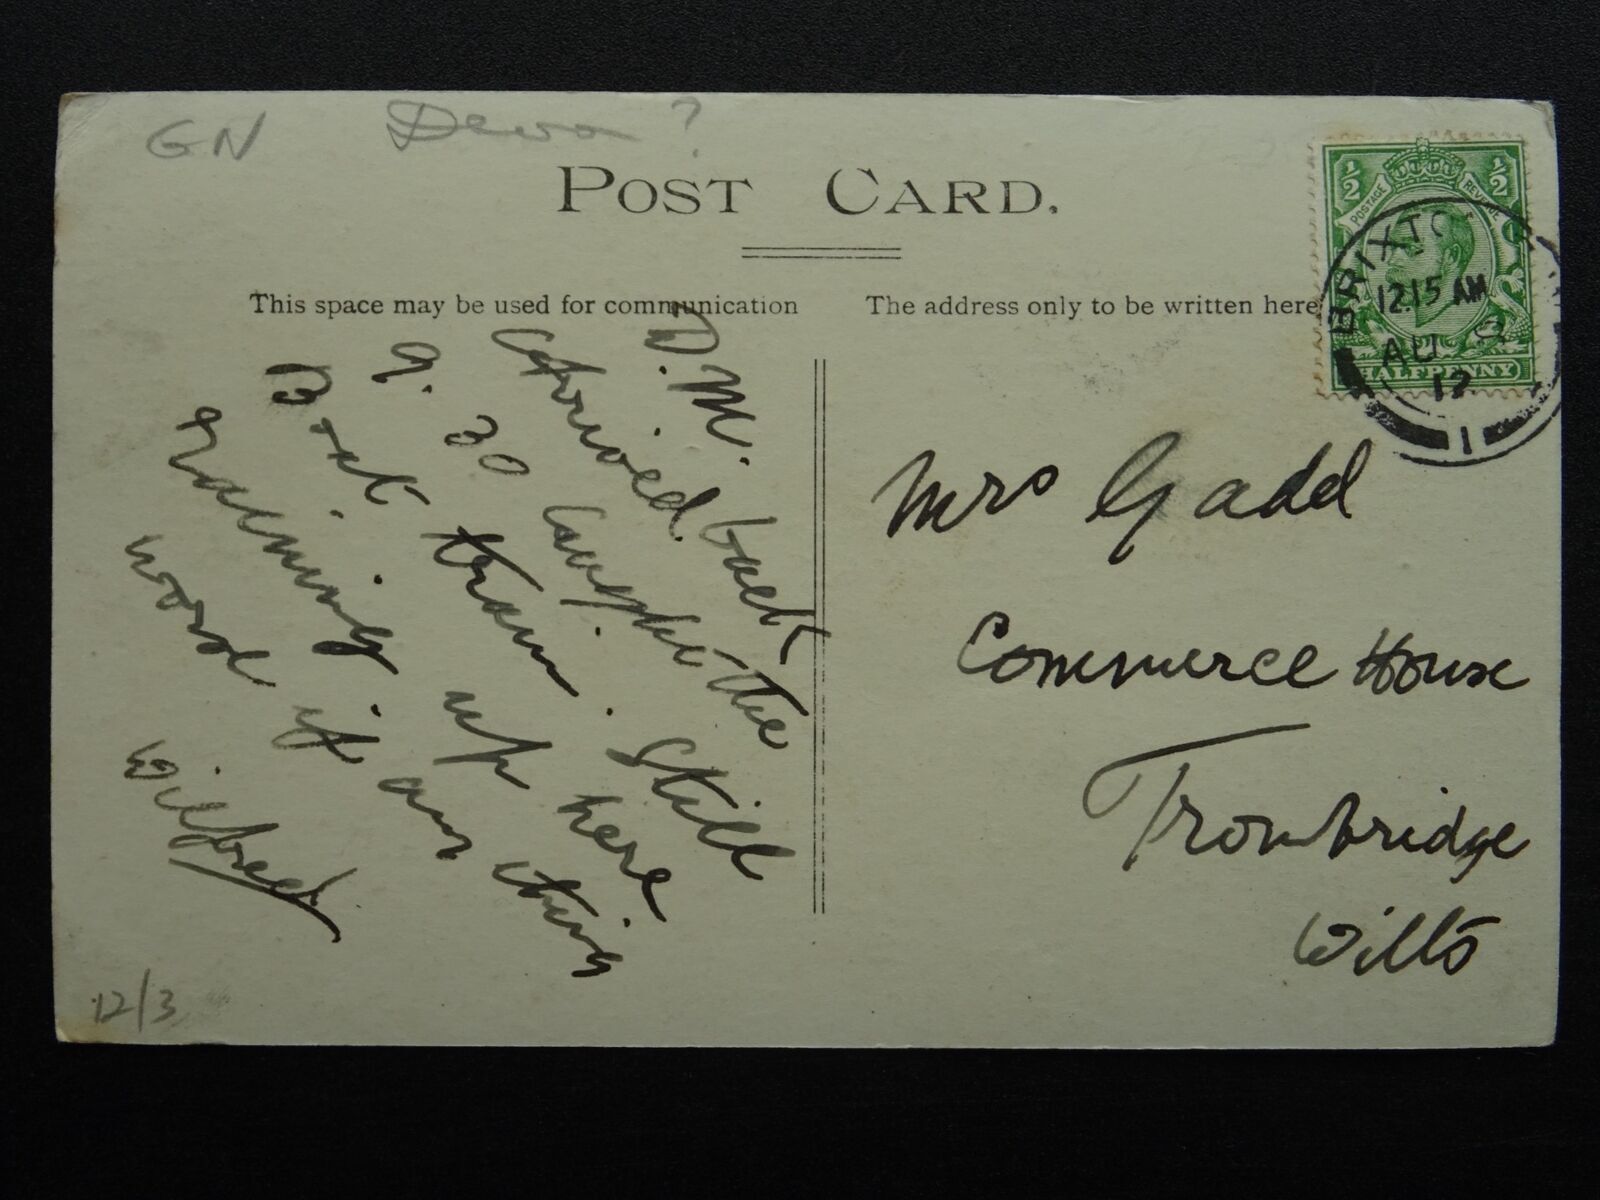 GN Devon ?
POST CARD.
This space may be used for communication
The address only to be written here
½ ½
POSTAGE REVENUE
HALFPENNY
BRIXTO
12.15 AM
AU 9
12
1
D.M.
Arrived back
9.30 Caught the
Boat train. Still
raining up here
word if any thing
Wilfred
Mrs Gadd
Commerce House
Trowbridge
Wilts
12/3